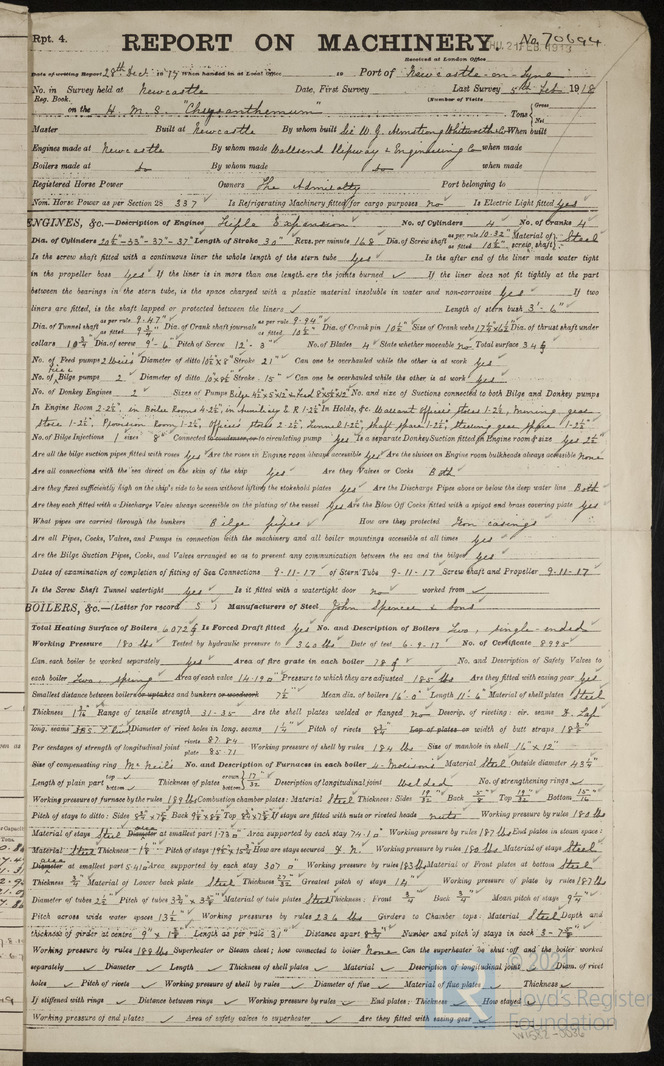 Rpt. 4.
REPORT ON MACHINERY.
No. 70694
THU. 21 FEB. 1918
Received at London Office
Date of writing Report 28th Dec. 1917 When handed in at Local Office 19 Port of Newcastle-on-Tyne
No. in Survey held at Newcastle Date, First Survey Last Survey 5th Feb 1918
Reg. Book. (Number of Visits
on the H. M. S. "Chrysanthemum" Tons { Gross Net
Master Built at Newcastle By whom built Sir W. G. Armstrong Whitworth & Co When built
Engines made at Newcastle By whom made Wallsend Slipway & Engineering Co when made
Boilers made at do By whom made do when made
Registered Horse Power Owners The Admiralty Port belonging to
Nom. Horse Power as per Section 28 337 Is Refrigerating Machinery fitted for cargo purposes No Is Electric Light fitted Yes
ENGINES, &c.—Description of Engines Triple Expansion No. of Cylinders 4 No. of Cranks 4
Dia. of Cylinders 20½-33-37-37 Length of Stroke 30" Revs. per minute 168 Dia. of Screw shaft as per rule 10.32" as fitted 10½" Material of screw shaft Steel
Is the screw shaft fitted with a continuous liner the whole length of the stern tube Yes Is the after end of the liner made water tight
in the propeller boss Yes If the liner is in more than one length are the joints burned If the liner does not fit tightly at the part
between the bearings in the stern tube, is the space charged with a plastic material insoluble in water and non-corrosive Yes If two
liners are fitted, is the shaft lapped or protected between the liners Length of stern bush 3'-6"
Dia. of Tunnel shaft as per rule 9.47" as fitted 9¾" Dia. of Crank shaft journals as per rule 9.94" as fitted 10½" Dia. of Crank pin 10½" Size of Crank webs Dia. of thrust shaft under
collars 10¾" Dia. of screw 9'-6" Pitch of Screw 12'-3" No. of Blades 4 State whether moveable No Total surface 34 ϕ
No. of Feed pumps 2 Weirs Diameter of ditto 10½" x 8" Stroke 21" Can one be overhauled while the other is at work Yes
No. of Bilge pumps 2 Diameter of ditto Stroke 15" Can one be overhauled while the other is at work Yes
No. of Donkey Engines 2 Sizes of Pumps No. and size of Suctions connected to both Bilge and Donkey pumps
In Engine Room 2-2½", in Boiler Room 4-2½" in Auxiliary E R 1-2½" In Holds, &c. Warrant officers stores 1-2½", Mining gear
Store 1-2½", Provision Room 1-2½", Officers stores 2-2½", Tunnel 1-2½", shaft space 1-2½", Steering gear space 1-2½"
No. of Bilge Injections 1 sizes 8" Connected to condenser, or to circulating pump Yes Is a separate Donkey Suction fitted in Engine room & size Yes 2½"
Are all the bilge suction pipes fitted with roses Yes Are the roses in Engine room always accessible Yes Are the sluices on Engine room bulkheads always accessible None
Are all connections with the sea direct on the skin of the ship Yes Are they Valves or Cocks Both
Are they fixed sufficiently high on the ship's side to be seen without lifting the stokehold plates Yes Are the Discharge Pipes above or below the deep water line Both
Are they each fitted with a Discharge Valve always accessible on the plating of the vessel Yes Are the Blow Off Cocks fitted with a spigot and brass covering plate Yes
What pipes are carried through the bunkers Bilge pipes How are they protected Iron casings
Are all Pipes, Cocks, Valves, and Pumps in connection with the machinery and all boiler mountings accessible at all times Yes
Are the Bilge Suction Pipes, Cocks, and Valves arranged so as to prevent any communication between the sea and the bilges Yes
Dates of examination of completion of fitting of Sea Connections 9-11-17 of Stern Tube 9-11-17 Screw shaft and Propeller 9-11-17
Is the Screw Shaft Tunnel watertight Yes Is it fitted with a watertight door no worked from
BOILERS, &c.—(Letter for record S) Manufacturers of Steel John Spencer & Sons
Total Heating Surface of Boilers 6072 ϕ Is Forced Draft fitted Yes No. and Description of Boilers Two, single-ended
Working Pressure 180 lbs Tested by hydraulic pressure to 360 lbs Date of test 6-9-17 No. of Certificate 8995
Can each boiler be worked separately Yes Area of fire grate in each boiler 78 ϕ No. and Description of Safety Valves to
each boiler Two, spring Area of each valve 14.190" Pressure to which they are adjusted 185 lbs Are they fitted with easing gear Yes
Smallest distance between boilers or uptakes and bunkers or woodwork 7½" Mean dia. of boilers 16'-0" Length 11'-6" Material of shell plates Steel
Thickness Range of tensile strength 31-35 Are the shell plates welded or flanged No Descrip. of riveting: cir. seams D. Lap
long. seams Diameter of rivet holes in long. seams 1¼" Pitch of rivets Lap of plates or width of butt straps
Per centages of strength of longitudinal joint rivets 87.84 plate 85.71 Working pressure of shell by rules 184 lbs Size of manhole in shell 16" x 12"
Size of compensating ring McNeil's No. and Description of Furnaces in each boiler 4-Morisons Material Steel Outside diameter
Length of plain part top bottom Thickness of plates crown bottom 17/32 Description of longitudinal joint Welded No. of strengthening rings
Working pressure of furnace by the rules 189 lbs Combustion chamber plates: Material Steel Thickness: Sides 19/32 Back 5/8 Top 19/32 Bottom 15/16
Pitch of stays to ditto: Sides Back Top If stays are fitted with nuts or riveted heads nuts Working pressure by rules 180 lbs
Material of stays Steel Diameter area at smallest part 1.730" Area supported by each stay 74.10" Working pressure by rules 187 lbs End plates in steam space:
Material Steel Thickness Pitch of stays How are stays secured D. N. Working pressure by rules 180 lbs Material of stays Steel
Diameter area at smallest part 5.410 Area supported by each stay 307 Working pressure by rules 183 lbs Material of Front plates at bottom Steel
Thickness ¾" Material of Lower back plate Steel Thickness 27/32 Greatest pitch of stays 14" Working pressure of plate by rules 187 lbs
Diameter of tubes 2½" Pitch of tubes Material of tube plates Steel Thickness: Front ¾" Back ¾" Mean pitch of stays
Pitch across wide water spaces 13½" Working pressures by rules 236 lbs Girders to Chamber tops: Material Steel Depth and
thickness of girder at centre Length as per rule 31" Distance apart Number and pitch of stays in each
Working pressure by rules 189 lbs Superheater or Steam chest; how connected to boiler None Can the superheater be shut off and the boiler worked
separately Diameter Length Thickness of shell plates Material Description of longitudinal joint Diam. of rivet
holes Pitch of rivets Working pressure of shell by rules Diameter of flue Material of flue plates Thickness
If stiffened with rings Distance between rings Working pressure by rules End plates: Thickness How stayed
Working pressure of end plates Area of safety valves to superheater Are they fitted with easing gear
© 2021
Lloyd's Register
Foundation